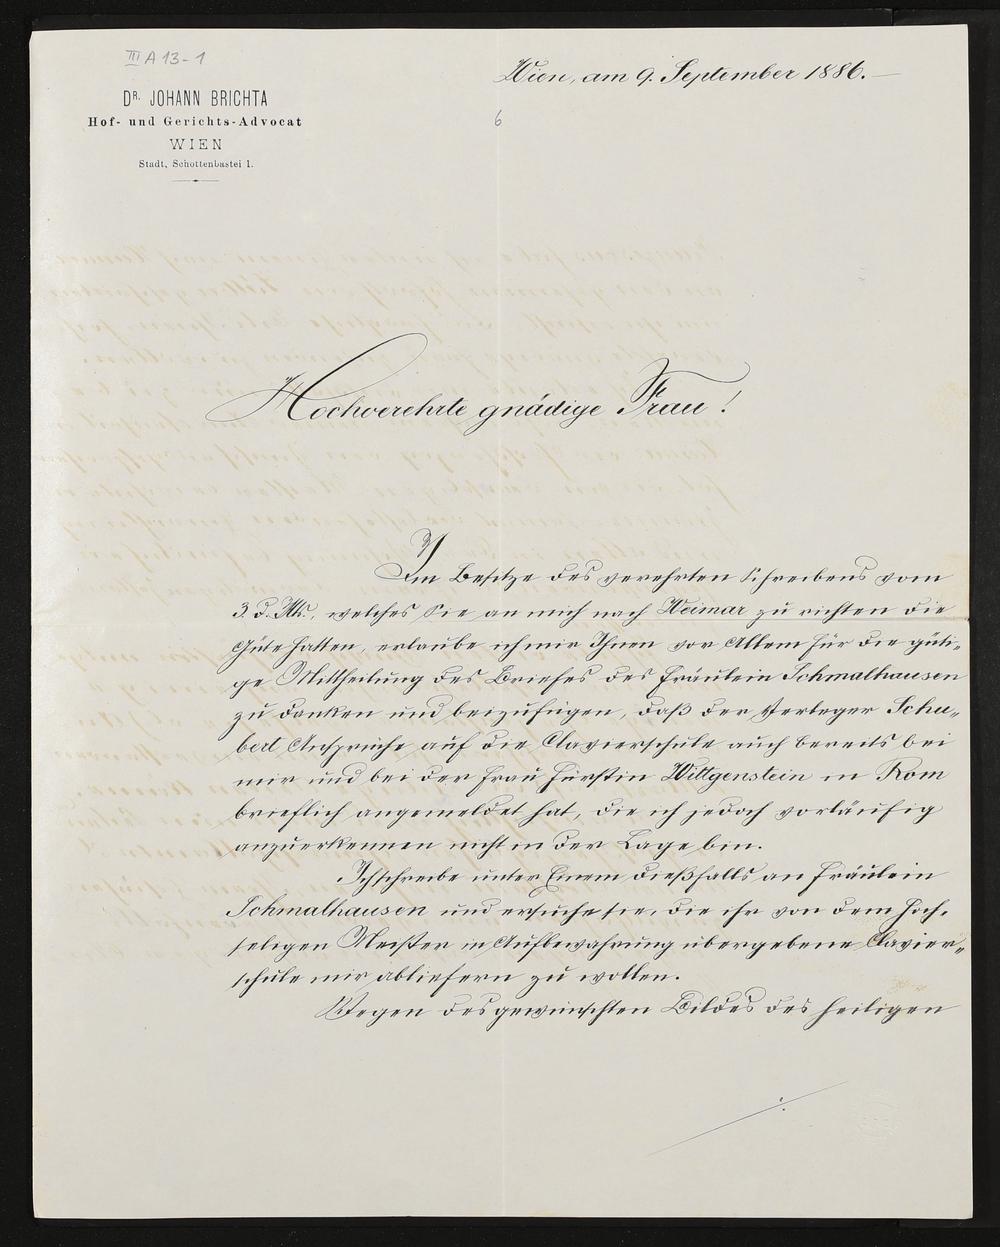 III A 13-1
Wien, am 9. September 1886.—
DR. JOHANN BRICHTA
Hof- und Gerichts-Advocat
WIEN
Stadt, Schottenbastei 1.
6
Hochverehrte gnädige Frau!
Im Besitze des verehrten Schreibens vom
3. d. Mts., welches Sie an mich nach Weimar zu richten die
Güte hatten, erlaube ich mir Ihnen vor Allem für die güti-
ge Mittheilung des Briefes des Fräulein Schmalhausen
zu danken und beizufügen, daß der Verleger Schu-
bert Ansprüche auf die Clavierschule auch bereits bei
mir und bei der Frau Fürstin Wittgenstein in Rom
brieflich angemeldet hat, die ich jedoch vorläufig
anzuerkennen nicht in der Lage bin.
Ich schreibe unter Einem dießfalls an Fräulein
Schmalhausen und ersuche sie, die ihr von dem hoch-
seligen Meister in Aufbewahrung übergebene Clavier-
schule mir abliefern zu wollen.
Wegen des gewünschten Bildes des heiligen
./.